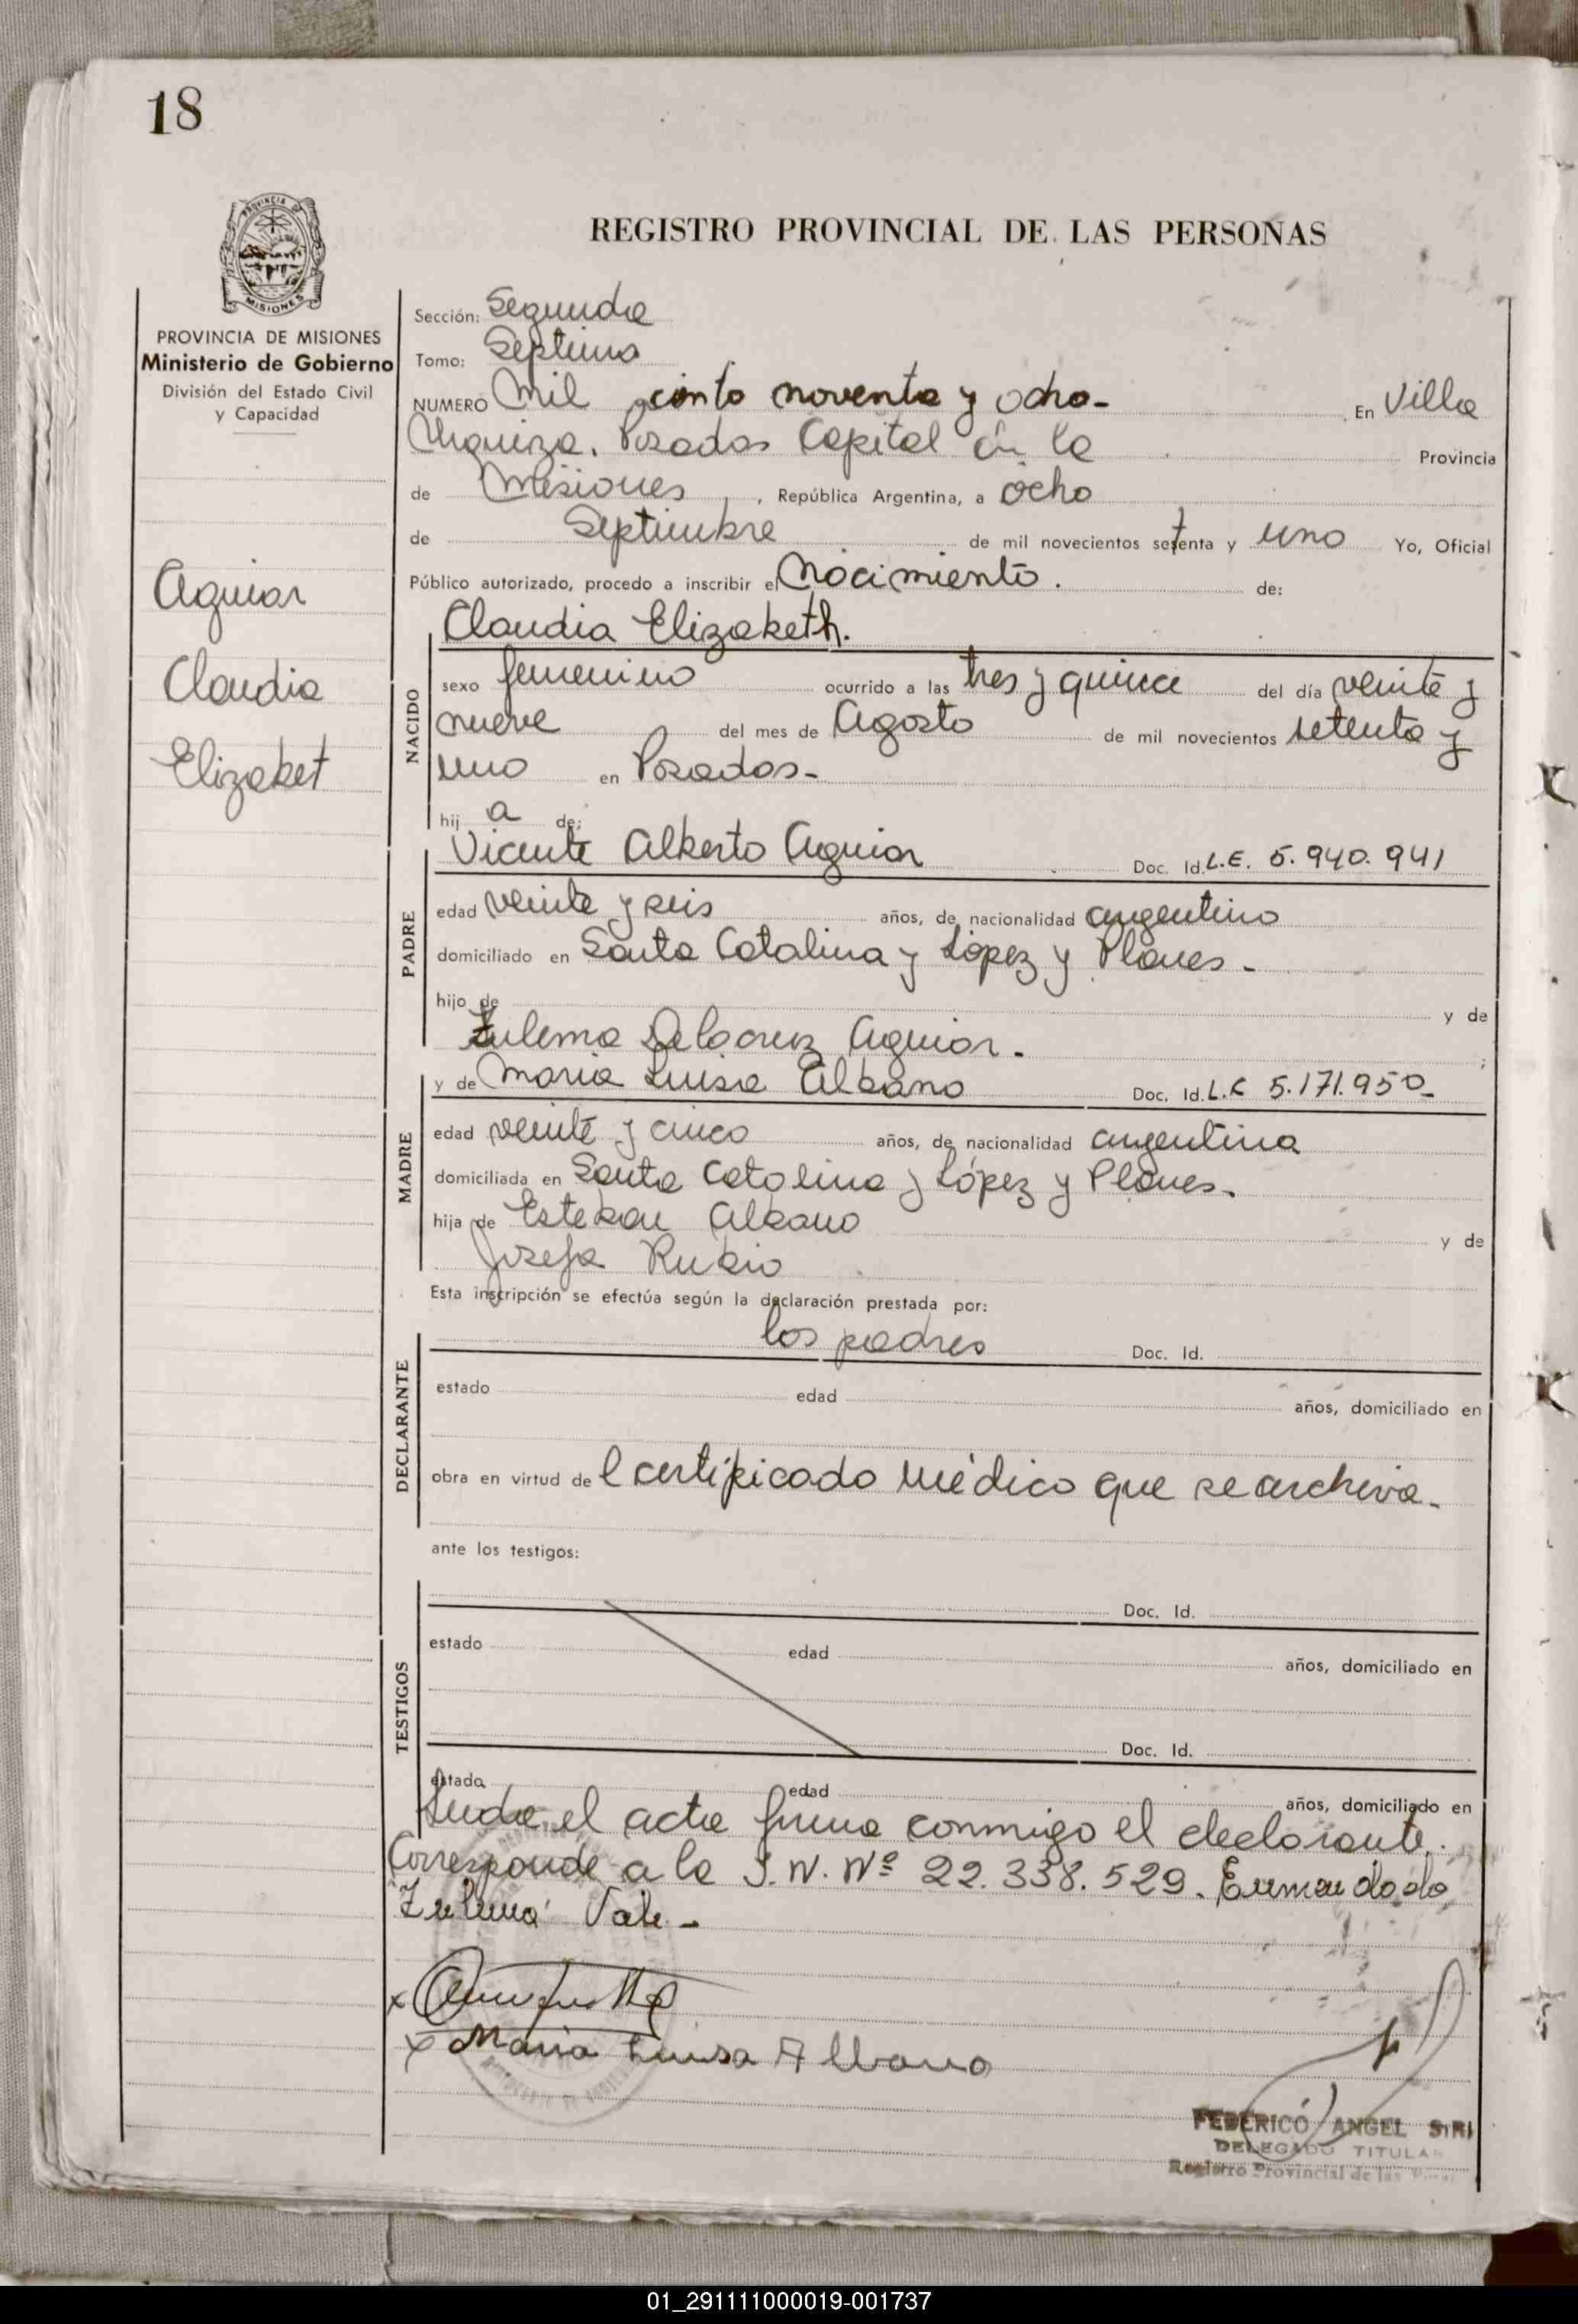 18
PROVINCIA DE
MISIONES
REGISTRO PROVINCIAL DE LAS PERSONAS
PROVINCIA DE MISIONES
Ministerio de Gobierno
División del Estado Civil
y Capacidad
Aguiar
Claudia
Elizabet
Sección: Segunda
Tomo: Septimo
NUMERO Mil ciento noventa y ocho- En Villa
Urquiza. Posadas Capital en la Provincia
de Misiones, República Argentina, a ocho
de Septiembre de mil novecientos setenta y uno Yo, Oficial
Público autorizado, procedo a inscribir el Nacimiento. de:
NACIDO
Claudia Elizabeth.
sexo femenino ocurrido a las tres y quince del día veinte y
nueve del mes de Agosto de mil novecientos setenta y
uno en Posadas-
hij a de:
PADRE
Vicente Alberto Aguiar Doc. Id. L.E. 5.940.941
edad veinte y seis años, de nacionalidad argentino
domiciliado en Santa Catalina y López y Planes-
hijo de y de
Zulema Delacruz Aguiar-
MADRE
y de Maria Luisa Albano Doc. Id. L.C 5.171.950-
edad veinte y cinco años, de nacionalidad argentina
domiciliada en Santa Catalina y López y Planes-
hija de Esteban Albano y de
Josefa Rubio
Esta inscripción se efectúa según la declaración prestada por:
DECLARANTE
los padres Doc. Id.
estado edad años, domiciliado en
obra en virtud de l certificado médico que se archiva-
ante los testigos:
TESTIGOS
Doc. Id.
estado edad años, domiciliado en
Doc. Id.
estado edad años, domiciliado en
Leida el acta firma conmigo el declarante.
Corresponde a la I.N. Nº 22.338.529. Enmendado
Zulema Vale-
x
x Maria Luisa Albano
FEDERICO ANGEL SIRI
DELEGADO TITULAR
Registro Provincial de las
01_291111000019-001737